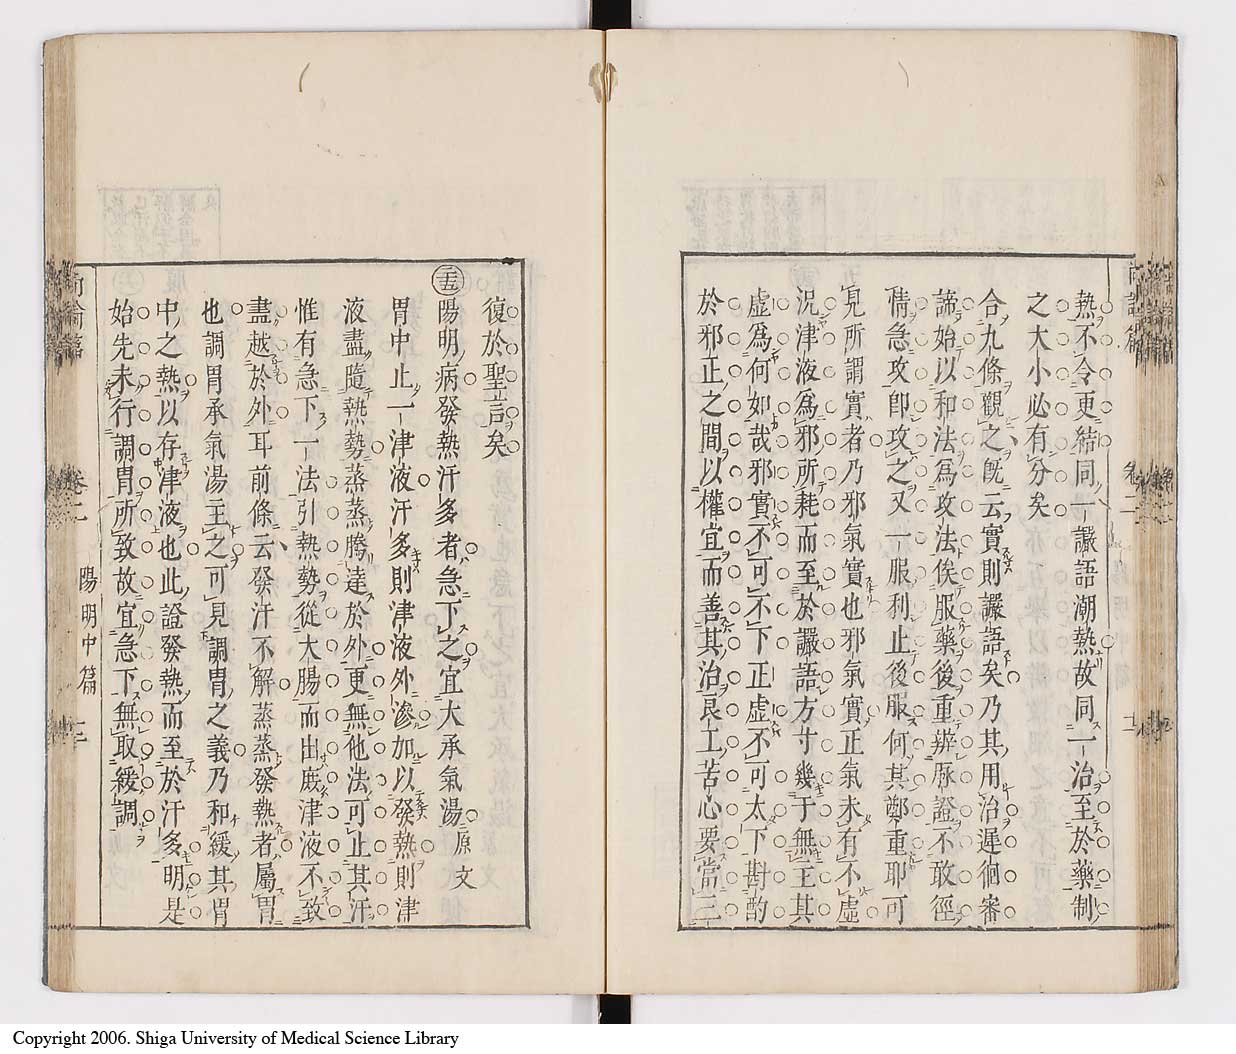 熱不令更結同一讝語潮熱故同一治至於藥制
之大小必有分矣
合九條觀之既云實則讝語矣乃其用治遲徊審
諦始以和法為攻法俟服藥後重辨脈證不敢徑
情急攻即攻之又一服利止後服何其鄭重耶可
見所謂實者乃邪氣實也邪氣實正氣未有不虛
況津液為邪所耗而至於讝語方寸幾于無主其
虛為何如哉邪實不可不下正虛不可太下斟酌
於邪正之間以權宜而善其治良工苦心要當三
復於聖言矣
陽明病發熱汗多者急下之宜大承氣湯 原文
胃中止一津液汗多則津液外滲加以發熱則津
液盡隨熱勢蒸蒸騰達於外更無他法可止其汗
惟有急下一法引熱勢從大腸而出庶津液不致
盡越於外耳前條云發汗不解蒸蒸發熱者屬胃
也調胃承氣湯主之可見調胃之義乃和緩其胃
中之熱以存津液也此證發熱而至於汗多明是
始先未行調胃所致故宜急下無取緩調
尚論篇 卷二 陽明中篇
Copyright 2006. Shiga University of Medical Science Library